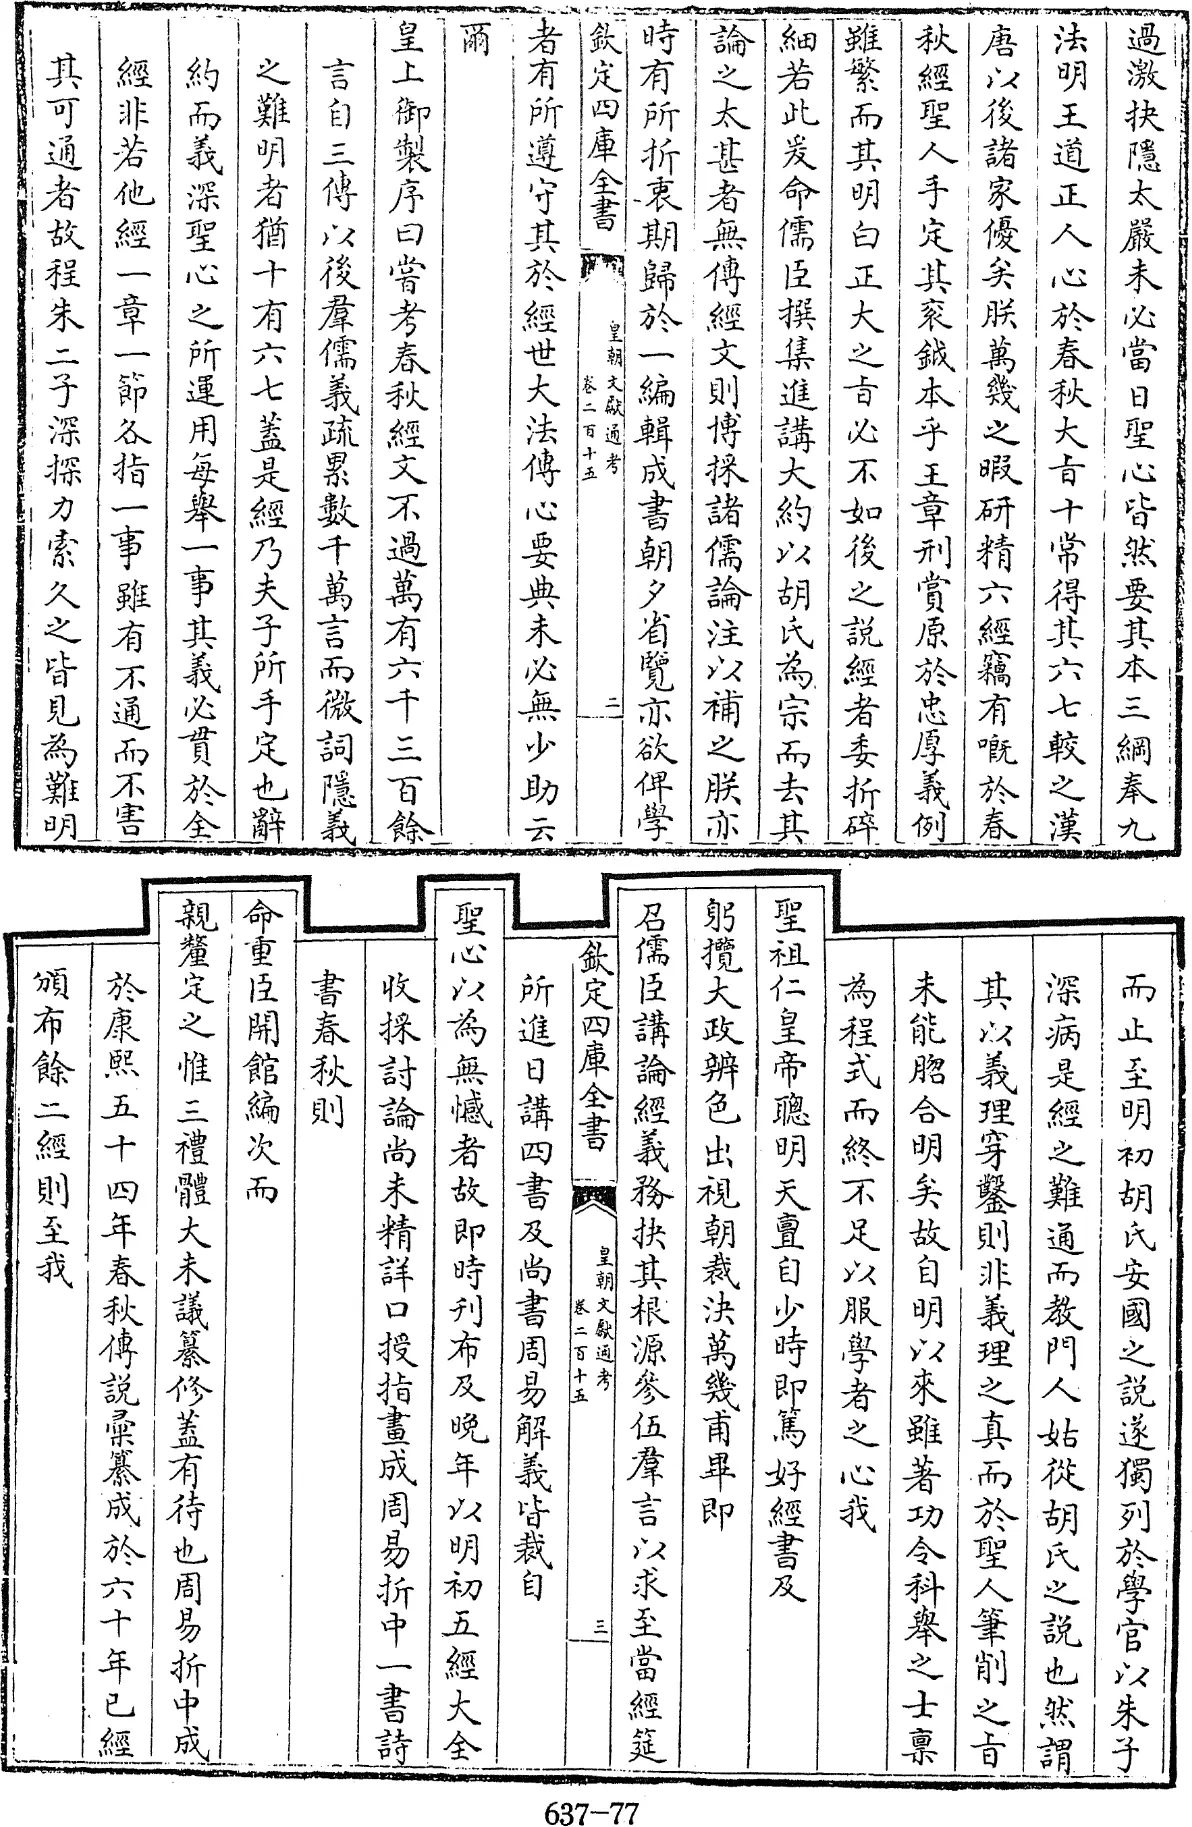 過激抉隱太嚴未必當日聖心皆然要其本三綱奉九
法明王道正人心於春秋大㫖十常得其六七較之漢
唐以後諸家優矣朕萬幾之暇研精六經竊有嘅於春
秋經聖人手定其衮鉞本乎王章刑賞原於忠厚義例
雖繁而其明白正大之㫖必不如後之説經者委折碎
細若此爰命儒臣撰集進講大約以胡氏為宗而去其
論之太甚者無傳經文則博採諸儒論注以補之朕亦
時有所折衷期歸於一編輯成書朝夕省覽亦欲俾學
欽定四庫全書
皇朝文獻通考
卷二百十五
二
者有所遵守其於經世大法傳心要典未必無少助云
爾
皇上御製序曰嘗考春秋經文不過萬有六千三百餘
言自三傳以後羣儒義疏累數千萬言而微詞隱義
之難明者猶十有六七蓋是經乃夫子所手定也辭
約而義深聖心之所運用每舉一事其義必貫於全
經非若他經一章一節各指一事雖有不通而不害
其可通者故程朱二子深探力索久之皆見為難明
而止至明初胡氏安國之說遂獨列於學官以朱子
深病是經之難通而教門人姑從胡氏之説也然謂
其以義理穿鑿則非義理之真而於聖人筆削之㫖
未能脗合明矣故自明以來雖著功令科舉之士稟
為程式而終不足以服學者之心我
聖祖仁皇帝聰明天亶自少時即篤好經書及
躬攬大政辨色出視朝裁決萬幾甫畢即
召儒臣講論經義務抉其根源參伍羣言以求至當經筵
欽定四庫全書
皇朝文獻通考
卷二百十五
三
所進日講四書及尚書周易解義皆裁自
聖心以為無憾者故即時刋布及晚年以明初五經大全
收採討論尚未精詳口授指畫成周易折中一書詩
書春秋則
命重臣開館編次而
親釐定之惟三禮體大未議纂修蓋有待也周易折中成
於康熙五十四年春秋傳説彚纂成於六十年已經
頒布餘二經則至我
637-77